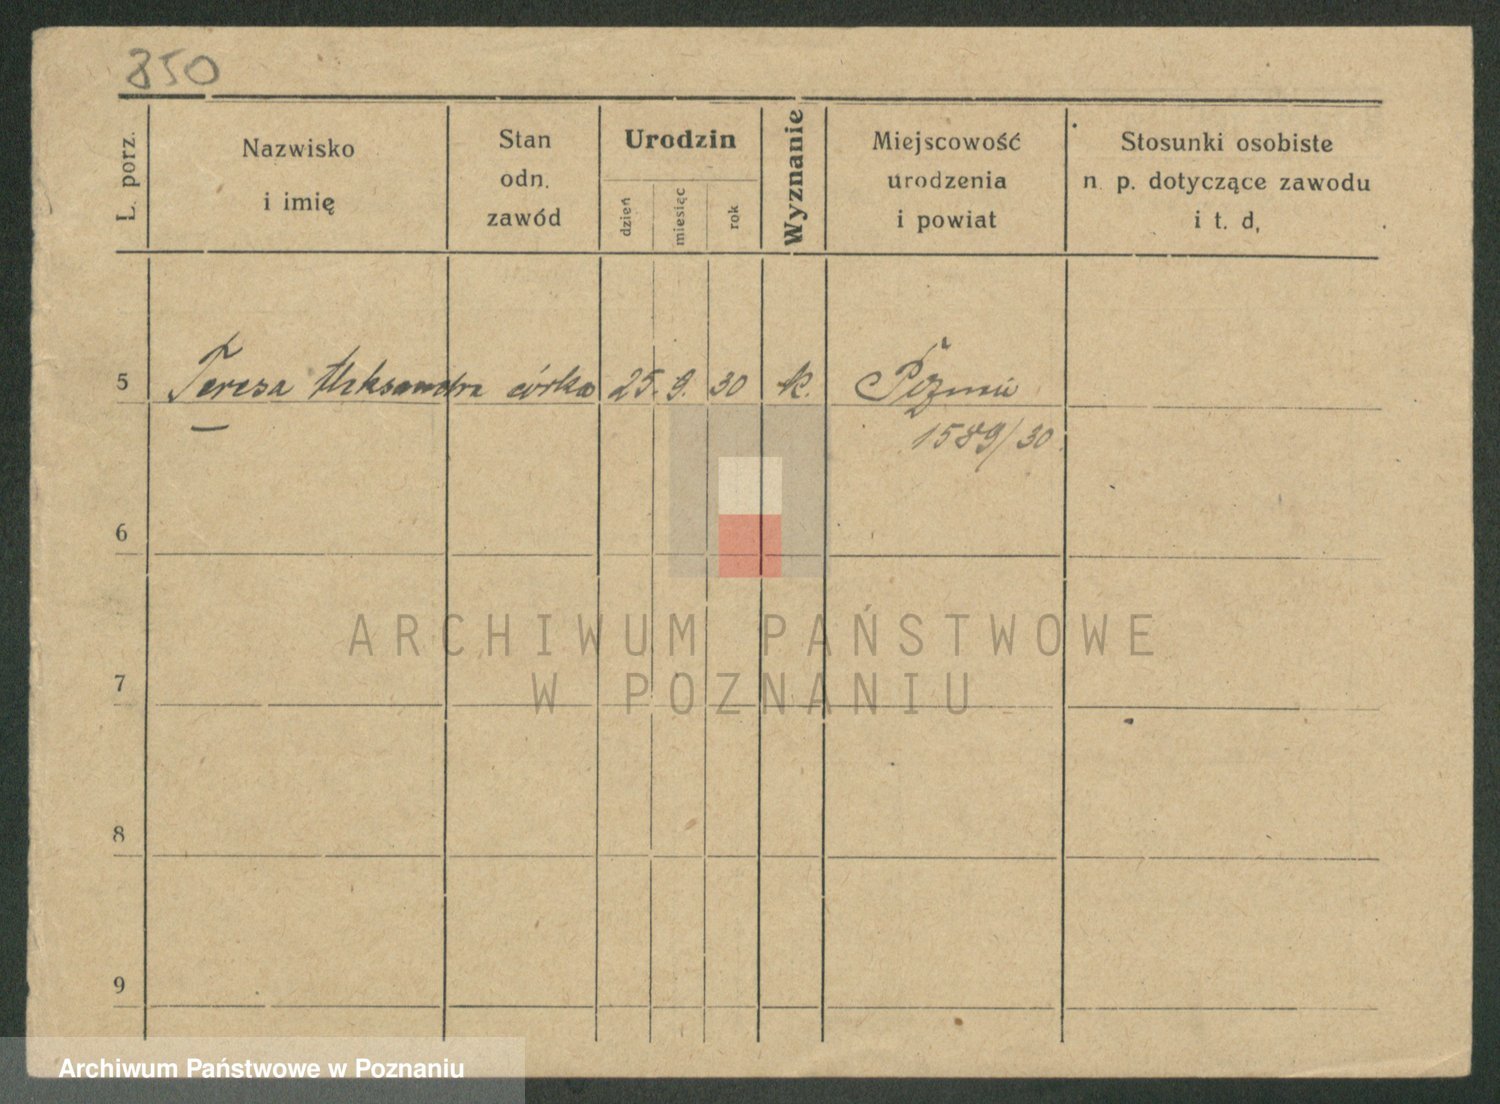 850
L. porz.
Nazwisko
i imię
Stan
odn.
zawód
Urodzin
dzień
miesiąc
rok
Wyznanie
Miejscowość
urodzenia
i powiat
Stosunki osobiste
n. p. dotyczące zawodu
i t. d,
5 Teresa Aleksandra córka 25. 9. 30 k.
1589/30
6
7
8
9
ARCHIWUM PAŃSTWOWE
W POZNANIU
Archiwum Państwowe w Poznaniu